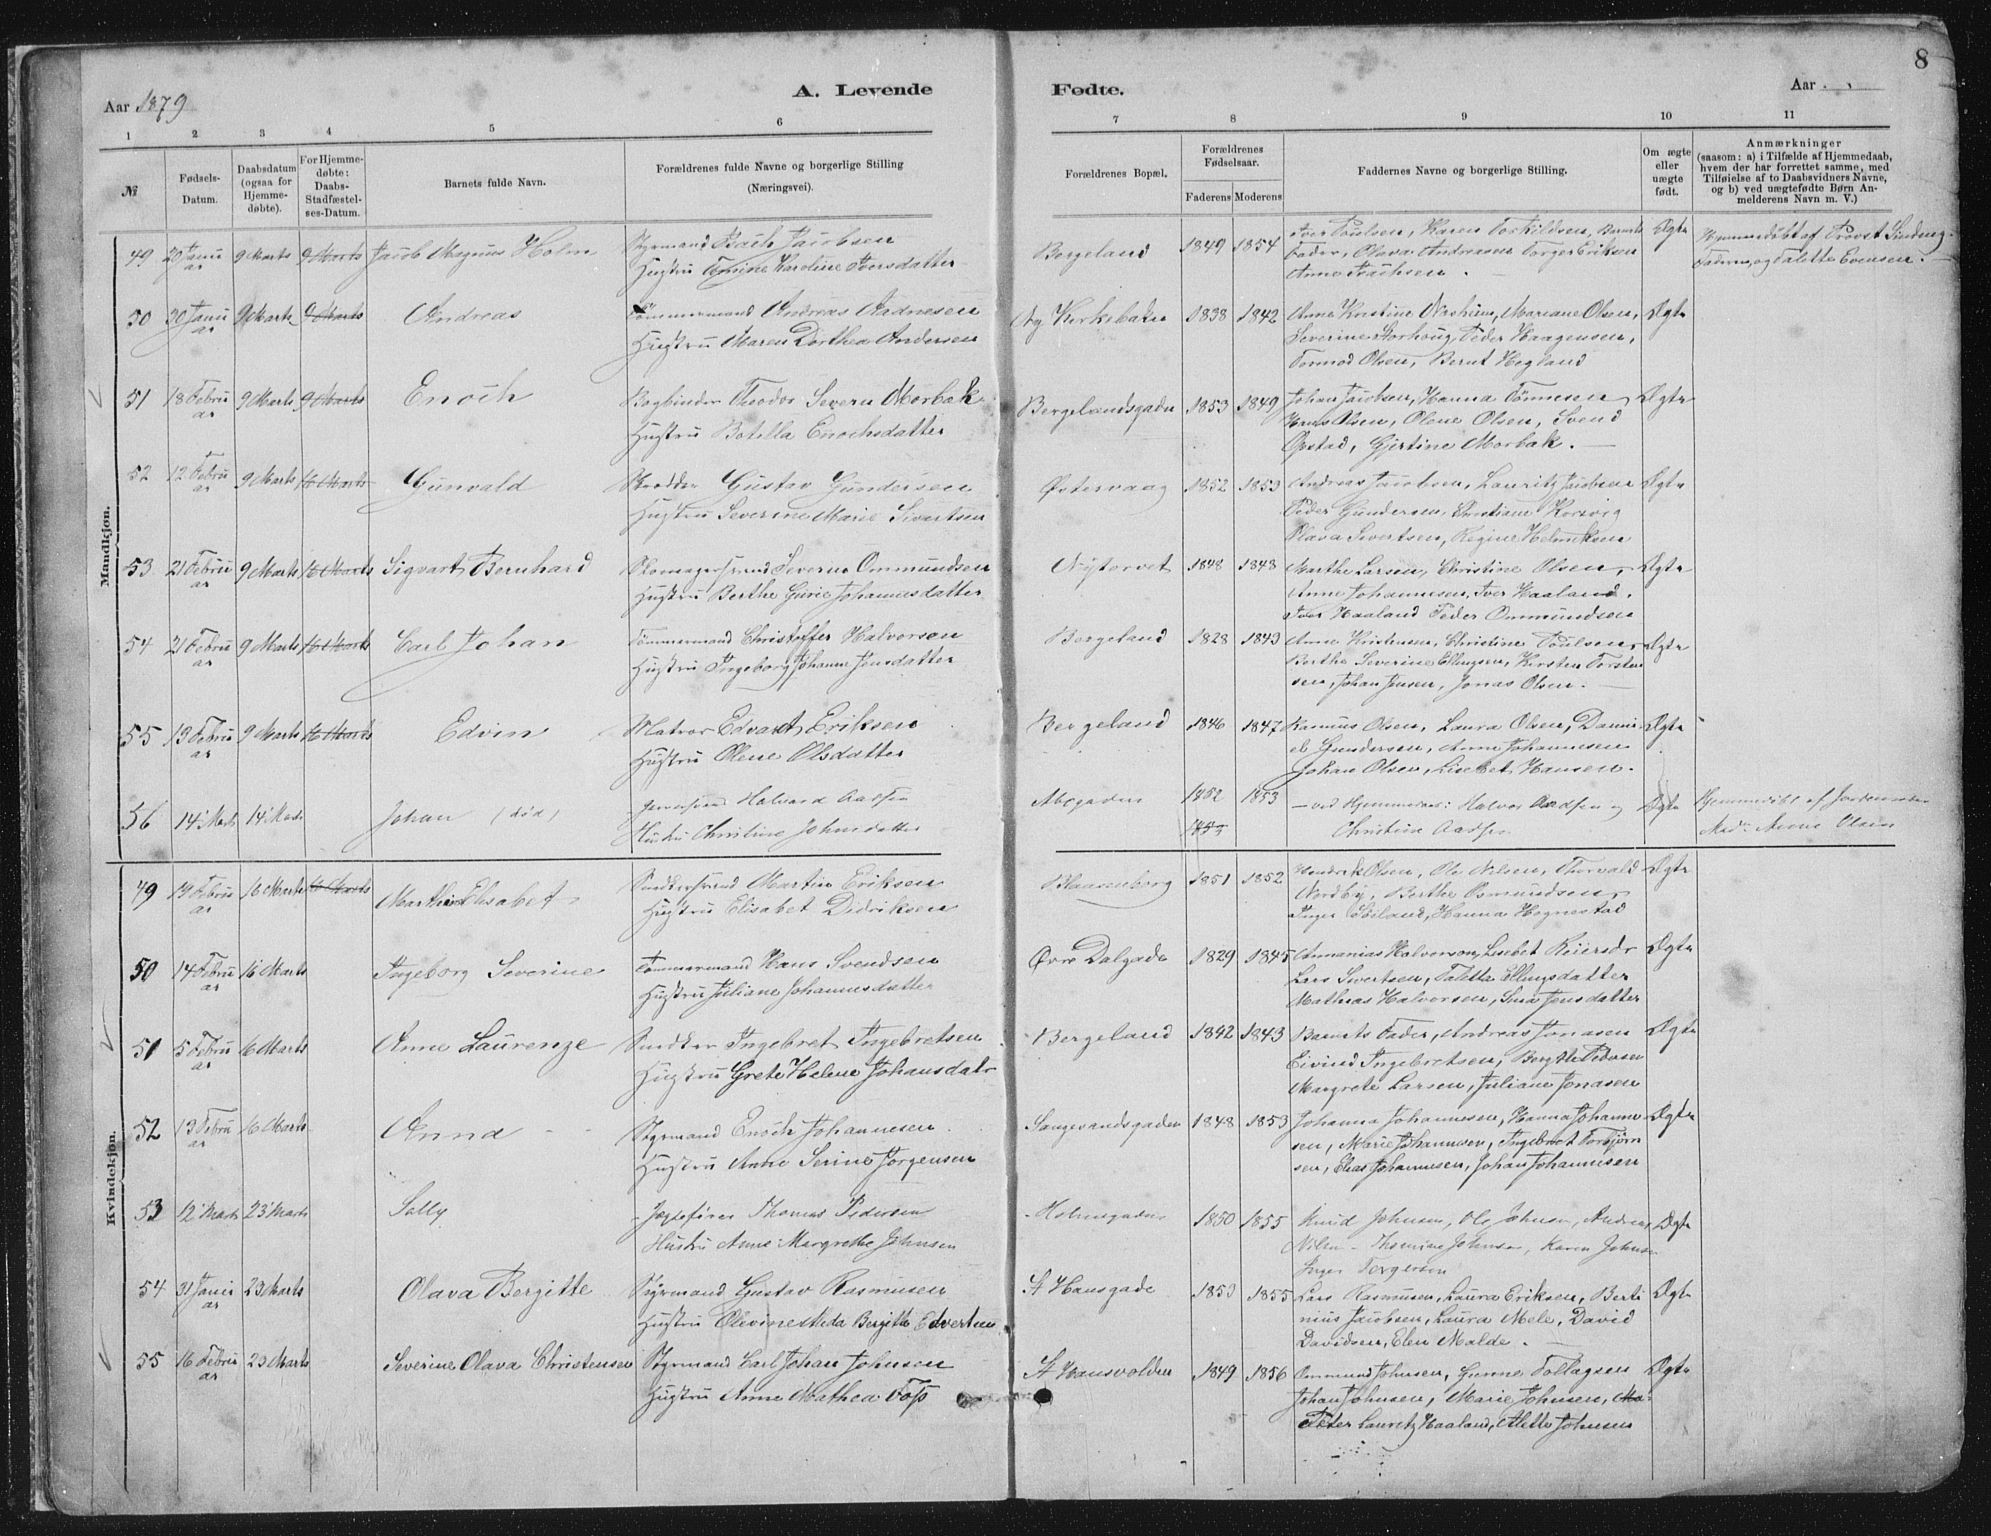 8
Aar 1879
A. Levende
Fødte.
Aar
1 2 3 4 5 6 7 8 9 10 11
№
Fødsels-Datum.
Daabsdatum (ogsaa for Hjemme-døbte).
For Hjemme-døbte: Daabs-Stadfæstel-ses-Datum.
Barnets fulde Navn.
Forældrenes fulde Navne og borgerlige Stilling
(Næringsvei).
Forældrenes Bopæl.
Forældrenes Fødselsaar.
Faderens Moderens
Faddernes Navne og borgerlige Stilling.
Om ægte eller uægte født.
Anmærkninger
(saasom: a) i Tilfælde af Hjemmedaab,
hvem der har forrettet samme, med
Tilføielse af to Daabsvidners Navne,
og b) ved uægtefødte Børn An-
melderens Navn m. V.)
Mandkjøn.
49 20 Januar 9 Marts 9 Marts Jacob Magnus Holm
Styrmand Bach Jacobsen
Hustru Tomine Karoline Iversdatter
Bergeland 1849 1854
Iver Poulsen, Karen Torkildsen, Barnets
Fader, Olava Andreasen Torger Eriksen
Anne Isachsen.
Ægte
Hjemmedøbt af Provst Sinding.
Faderen, og Valette Evensen.
50 30 Januar 9 Marts 9 Marts Andreas
Tømmermand Andreas Aadnesen
Hustru Maren Dorthea Andersen
Ny Kirkebakke 1838 1842
Anne Kristine, Mariane Olsen,
Severine Storhoug, Peder Haagensen,
Tormod Olsen, Bernt Hegland
Ægte
51 18 Februar 9 Marts 9 Marts Enoch
Bogbinder Theodor Severin Morbak
Hustru Botilla Enochsdatter
Bergelandsgaden 1853 1849
Johan Jacobsen, Hanna Tønnesen
Hans Olsen, Olene Olsen, Svend
Opstad, Gjertine Morbak.
Ægte
52 12 Februar 9 Marts 16 Marts Gunvald
Skrædder Gustav Gundersen
Hustru Severine Marie Sivertsen
Østervaag 1852 1853
Andreas Jacobsen, Lauritz Jacobsen
Peder Gundersen, Christiane Korsvig
Olava Sivertsen, Regine Helmiksen
Ægte
53 21 Februar 9 Marts 16 Marts Sigvart Bernhard
Severin Ommundsen
Hustru Berthe Gurie Johannesdatter
Nytorvet 1848 1848
Marthe Larsen, Christine Olsen,
Anne Johannesen, Iver Haaland,
Iver Haaland Peder Ommundsen
Ægte
54 21 Februar 9 Marts 16 Marts Carl Johan
Tømmermand Christoffer Halvorsen
Hustru Ingeborg Johanne Jensdatter
Bergeland 1828 1843
Anne Kristensen, Christine Poulsen,
Berthe Severine Ellingsen, Kirsten Torsten
sen, Johan Jensen, Jonas Olsen.
Ægte
55 13 Februar 9 Marts 16 Marts Edvin
Matros Edvart Eriksen
Hustru Olene Olsdatter
Bergeland 1846 1847
Rasmus Olsen, Laura Olsen, Dani
el Gundersen, Anne Johannesen
Johan Olsen, Lisebet Hansen.
Ægte
56 14 Marts 14 Marts Johan (død)
Halvard Aadsen
Hustru Christine Johnsdatter
1852 1853
1853
ved Hjemmedaab: Halvor Aadsen og
Christine Aadsen
Ægte
Hjemmedøbt af Jordemoder
Mad. Anne Olsen
Kvindekjøn.
49 14 Februar 16 Marts 16 Marts Marthine Elisabet
Snedkersvend Martin Eriksen
Hustru Elisabet Didriksen
Blaaneborg 1851 1852
Hendrik Olsen, Ole Nilsen, Thorvald
Nordby, Berthe Osmundsen,
Inger, Hanna Hognestad
Ægte
50 14 Februar 16 Marts Ingeborg Severine
Tømmermand Hans Svendsen
Hustru Juliane Johannesdatter
Øvre Dalgade 1829 1845
Annanias Halvorsen, Lisebet Reiersdr
Lars Sivertsen, Talette Ellingsdatter
Mathias Halvorsen, Sina Jensdatter
Ægte
51 5 Februar 16 Marts Anne Laurenze
Snedker Ingebret Ingebretsen
Hustru Grete Helene Johansdatr
Bergeland 1842 1843
Barnets Fader, Andreas Jonasen
Eivind Ingebretsen, Bergitte Pedersen
Margrete Larsen, Juliane Jonasen
Ægte
52 13 Februar 16 Marts Anna
Styrmand Enoch Johannesen
Hustru Anne Serine Jørgensen
Langesandsgaden 1848 1853
Johanna Johannesen, Hanna Johanne
sen, Marie Johannesen, Ingebret Torbjørn
sen, Elias Johannesen, Johan Johannesen
Ægte
53 12 Marts 23 Marts Solly
Jægtefører Thomas Pedersen
Hustru Anne Margrethe Johnsen
Holmegaden 1850 1855
Knud Johnsen, Ole Johnsen, Andreas
Nilsen, Thomine Johnsen, Karen Johnsen
Inger Torgersen
Ægte
54 31 Januar 23 Marts Olava Bergitte
Styrmand Gustav Rasmusen
Hustru Olevine Aleda Bergitte Edvertsen
St Hansgade 1853 1855
Lars Rasmusen, Laura Eriksen, Berti
nius Jacobsen, Laura Mele, David
Davidsen, Elen Malde.
Ægte
55 16 Februar 23 Marts Severine Olava Christensen
Styrmand Carl Johan Johnsen
Hustru Anne Mathea Foss
St Hansvolden 1849 1856
Ommund Johnsen, Gunne Tollagsen
Johan Johnsen, Marie Johnsen,
Peter Lauritz Haaland, Alette Johnsen
Ægte